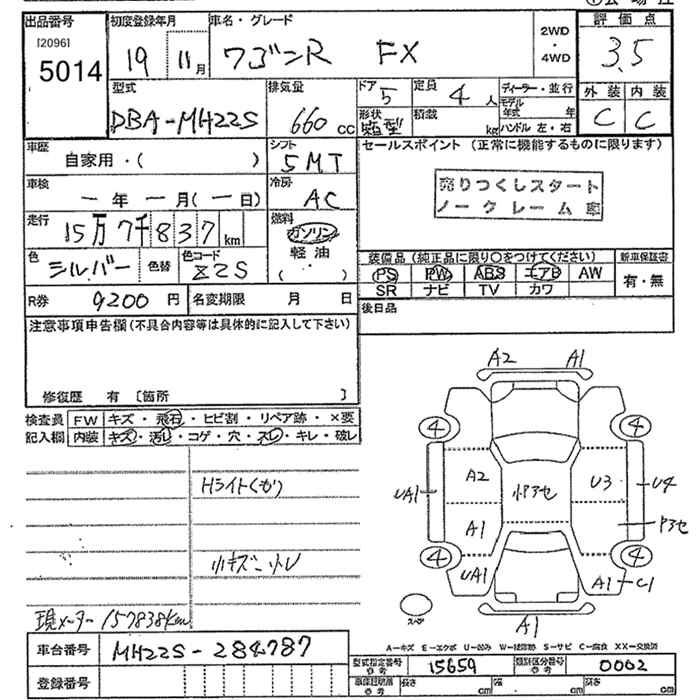 出品番号 初度登録年月 車名・グレード 2WD ・ 4WD 評価点
[2096]
5014 19 11月 ワゴンR FX 3.5
型式 排気量 ドア 5 定員 4 人 ディーラー・並行 外装 内装
DBA-MH22S 660 CC 形状 箱型 積載 kg モデル年式 年 ハンドル 左・右 C C
車歴 自家用・( ) シフト 5MT セールスポイント (正常に機能するものに限ります)
車検 ー年ー月(ー日) 冷房 AC
売りつくしスタート
ノークレーム車
走行 15万7千837km 燃料 ガソリン 軽油 ( ・ )
色 シルバー 色替 色コード Z2S
装備品 (純正品に限り○をつけてください) 新車保証書
PS PW ABS エアB AW 有・無
SR ナビ TV カワ
R券 9200円 名変期限 月 日 後日品
注意事項申告欄(不具合内容等は具体的に記入して下さい)
修復歴 有 [箇所 ]
検査員 FW キズ・飛石・ヒビ割・リペア跡・×要
記入欄 内装 キズ・汚レ・コゲ・穴・スレ・キレ・破レ
Hライトくもり
小キズ・小凹
現メーター157838km
A2 A1
4 4
A2 小P3セ U3 U4
UA1 A1 P3セ
4 4
UA1 A1 C1
スペア A1
A=キズ E=エクボ U=凹み W=補修跡 S=サビ C=腐食 XX=交換済
車台番号 MH22S-284787
型式指定番号 参考 15659 類別区分番号 参考 0002
登録番号 車庫証明用 参考 長さ cm 幅 cm 高さ cm